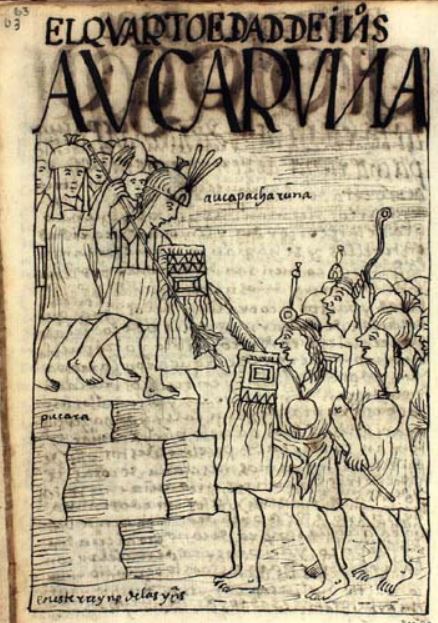 63
63
EL QVARTO EDAD DE INº̄S
AVCA RVNA
aucapacha runa
pucara
en este rreyno de las yn̄s